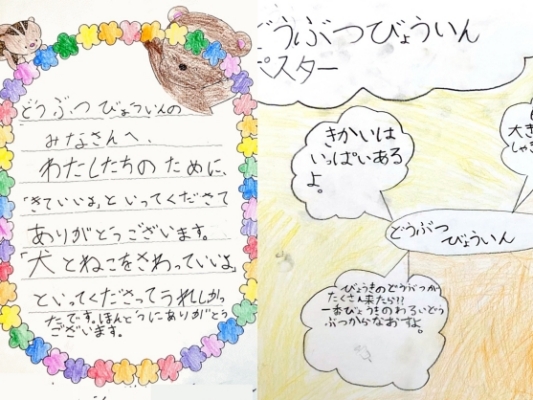 どうぶつびょういんの
みなさんへ、
わたしたちのために、
「きていいよ」といってくださて
ありがとうございます。
「犬とねこをさわっていいよ」
といってくださってうれしかっ
たです。ほんとうにありがとう
ございます。
どうぶつびょういん
ポスター
きかいは
いっぱいある
よ。
大き
しゃし
どうぶつ
びょういん
びょうきのどうぶつが
たくさん来たら!!
一番びょうきのわるいどう
ぶつからなおすよ。